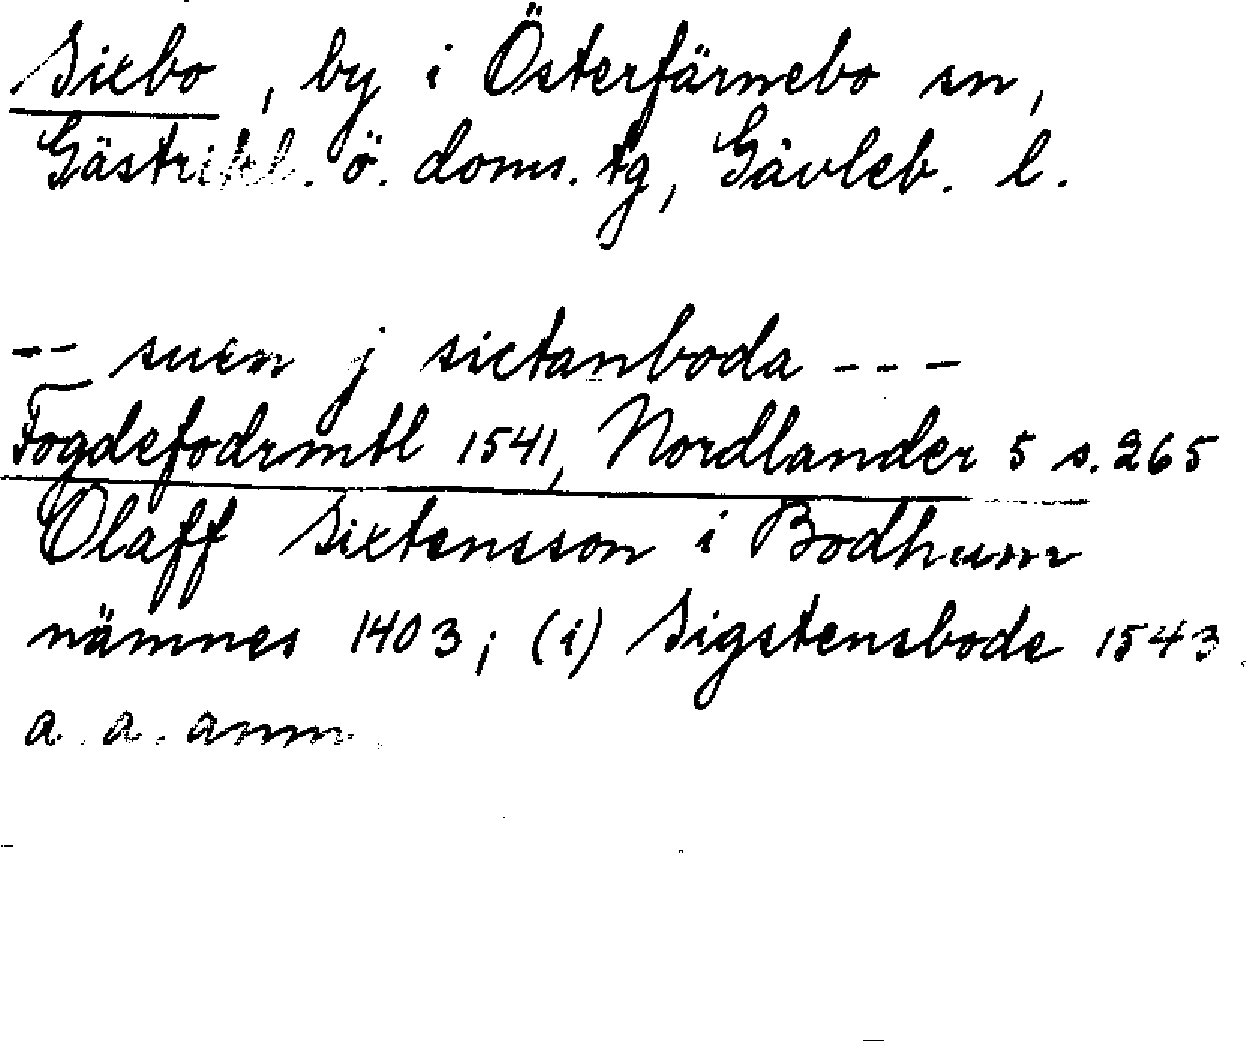 Sixbo, by i Österfärnebo sn,
Gästrikl. ö. doms. tg, Gävleb. l.
-- suen j sictanboda ---
Fogdefodrmtl 1541, Nordlander 5 s. 265
Olaff Sixtensson i Bodhum
nämnes 1403; (i) Sigstensbode 1543
a. a. anm.